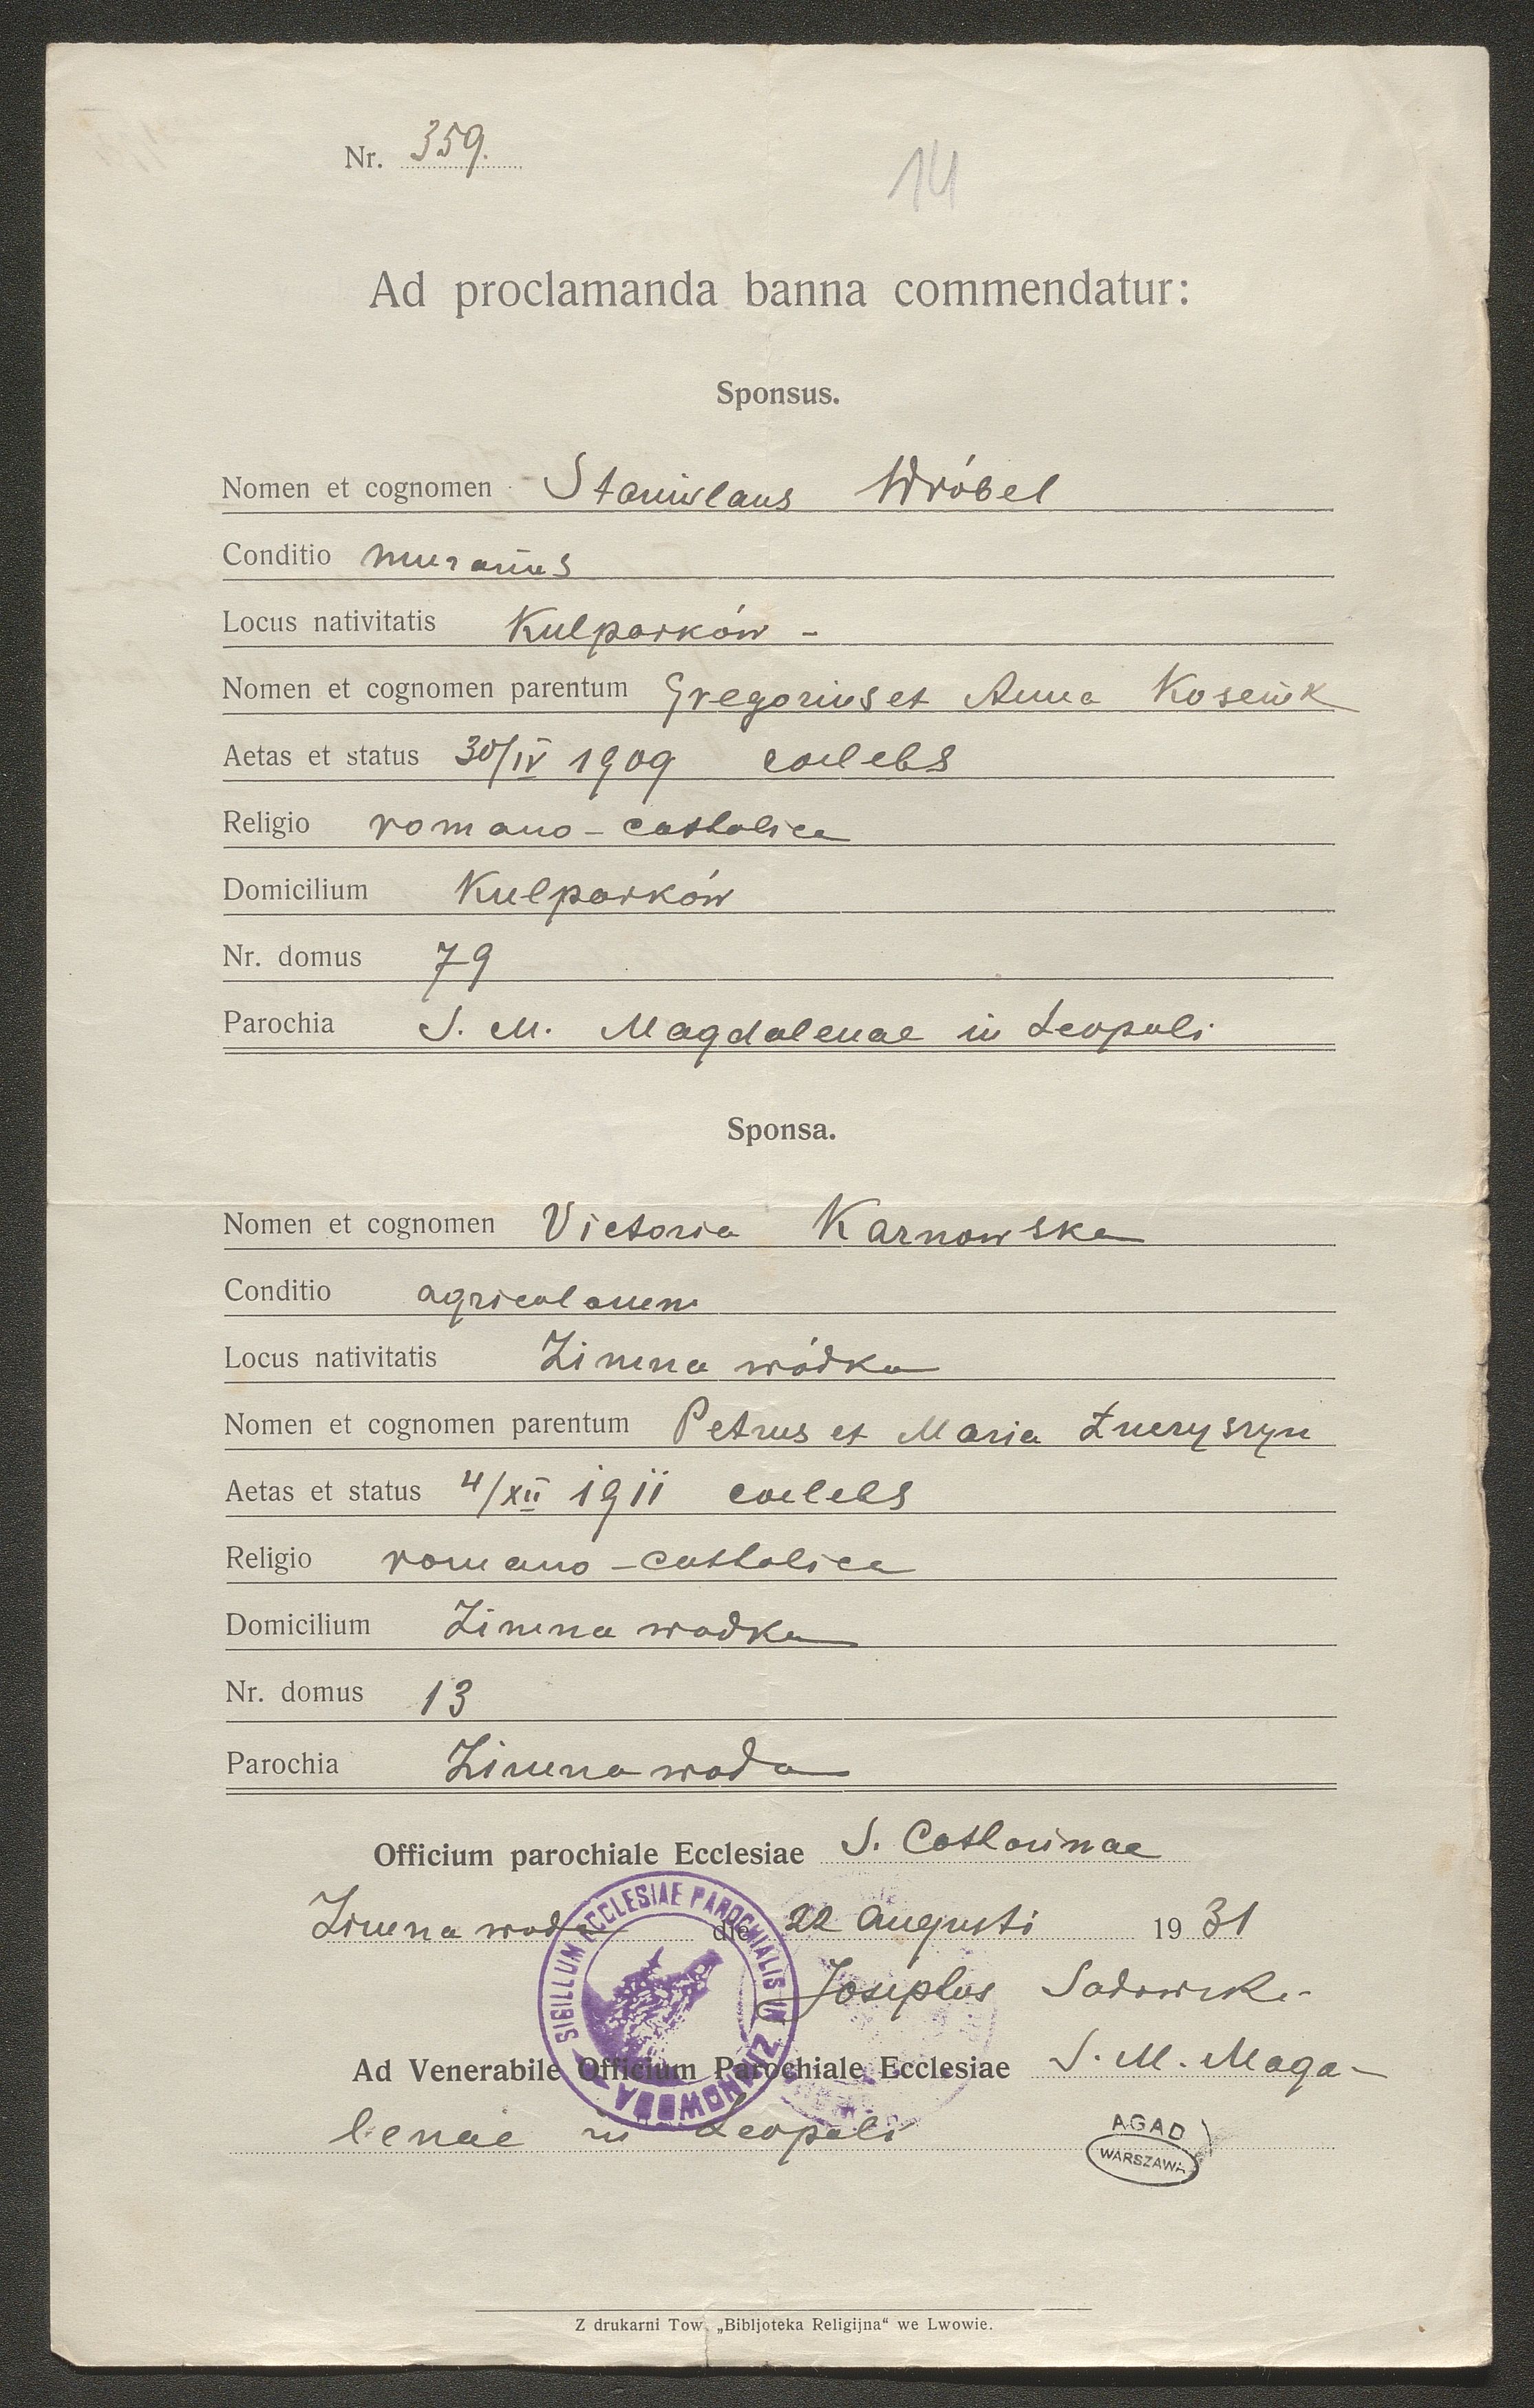 Nr. 359.
14
Ad proclamanda banna commendatur:
Sponsus.
Nomen et cognomen Stanislaus Wróbel
Conditio murarius
Locus nativitatis Kulparków -
Nomen et cognomen parentum Gregorius et Anna
Aetas et status 30/IV 1909 coelebs
Religio romano-catholica
Domicilium Kulparków
Nr. domus 79
Parochia S. M. Magdalenae in Leopoli
Sponsa.
Nomen et cognomen Victoria Karnowska
Conditio
Locus nativitatis Zimna wódka
Nomen et cognomen parentum Petrus et Maria
Aetas et status 4/XII 1911 coelebs
Religio romano-catholica
Domicilium Zimna wodka
Nr. domus 13
Parochia Zimna woda
Officium parochiale Ecclesiae S. Catharinae
Zimna woda die 22 Augusti 1931
SIGILLUM ECCLESIAE PAROCHIALIS IN ZIMNOWODA
Josephus
Ad Venerabile Officium Parochiale Ecclesiae S. M. Maga-
lenae in Leopoli
AGAD
WARSZAWA
Z drukarni Tow. „Bibljoteka Religijna“ we Lwowie.